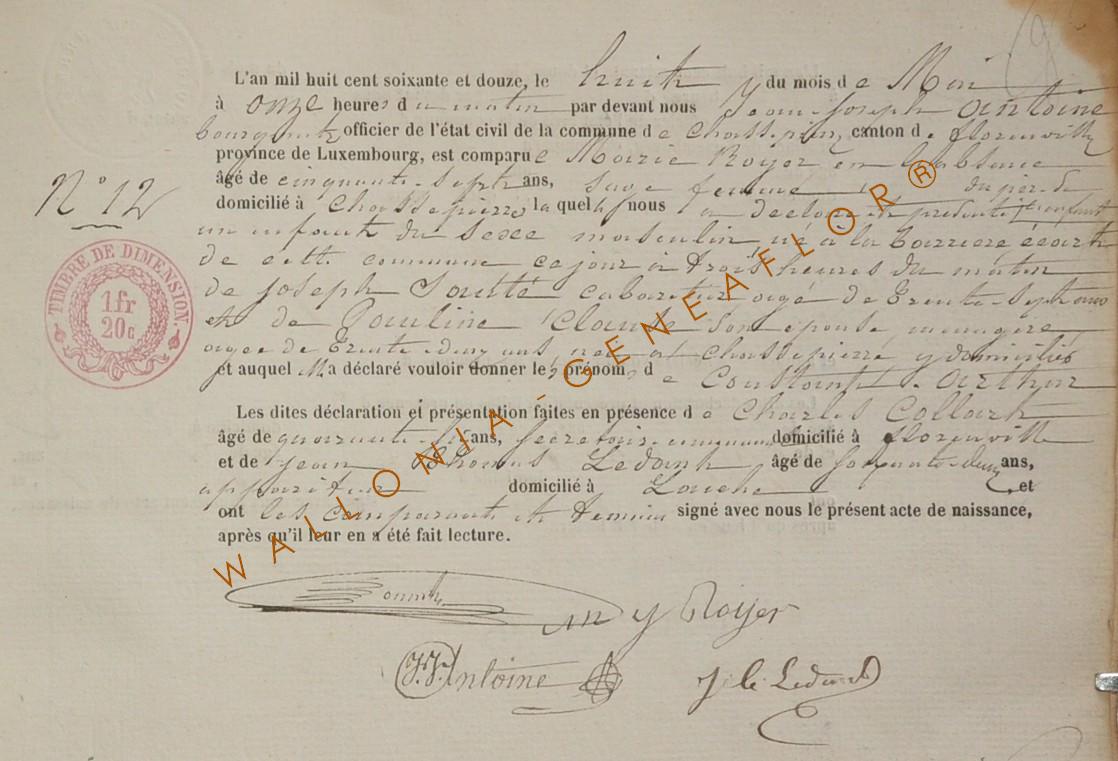 L'an mil huit cent soixante et douze, le huit du mois de Mai
à onze heures du matin par devant nous Jean Joseph Antoine
bourgmestre officier de l'état civil de la commune de Chassepierre canton de florenville
province de Luxembourg, est comparue Marie Royer en l'absence
N° 12
âgé de cinquante-sept ans, sage femme du père de
domicilié à Chassepierre la quelle nous a déclaré et présenté l'enfant
un enfant du sexe masculin, né à la barrière écart
de cette commune ce jour à trois heures du matin
de Joseph cabaretier agé de trente-sept ans
et de Pauline son épouse ménagère
agée de trente deux ans, à chassepierre y domiciliés
et auquel a déclaré vouloir donner les prénoms de Constant. arthur
Les dites déclaration et présentation faites en présence de Charles Collard
âgé de quarante ans, secrétaire communal domicilié à florenville
et de jean thomas Ledant âgé de ans,
appariteur domicilié à et
ont les comparants et témoins signé avec nous le présent acte de naissance,
après qu'il leur en a été fait lecture.
TIMBRE DE DIMENSION.
1fr
20c
M J Royer
J.J. Antoine
WALLONIA-GENEAFLOR®